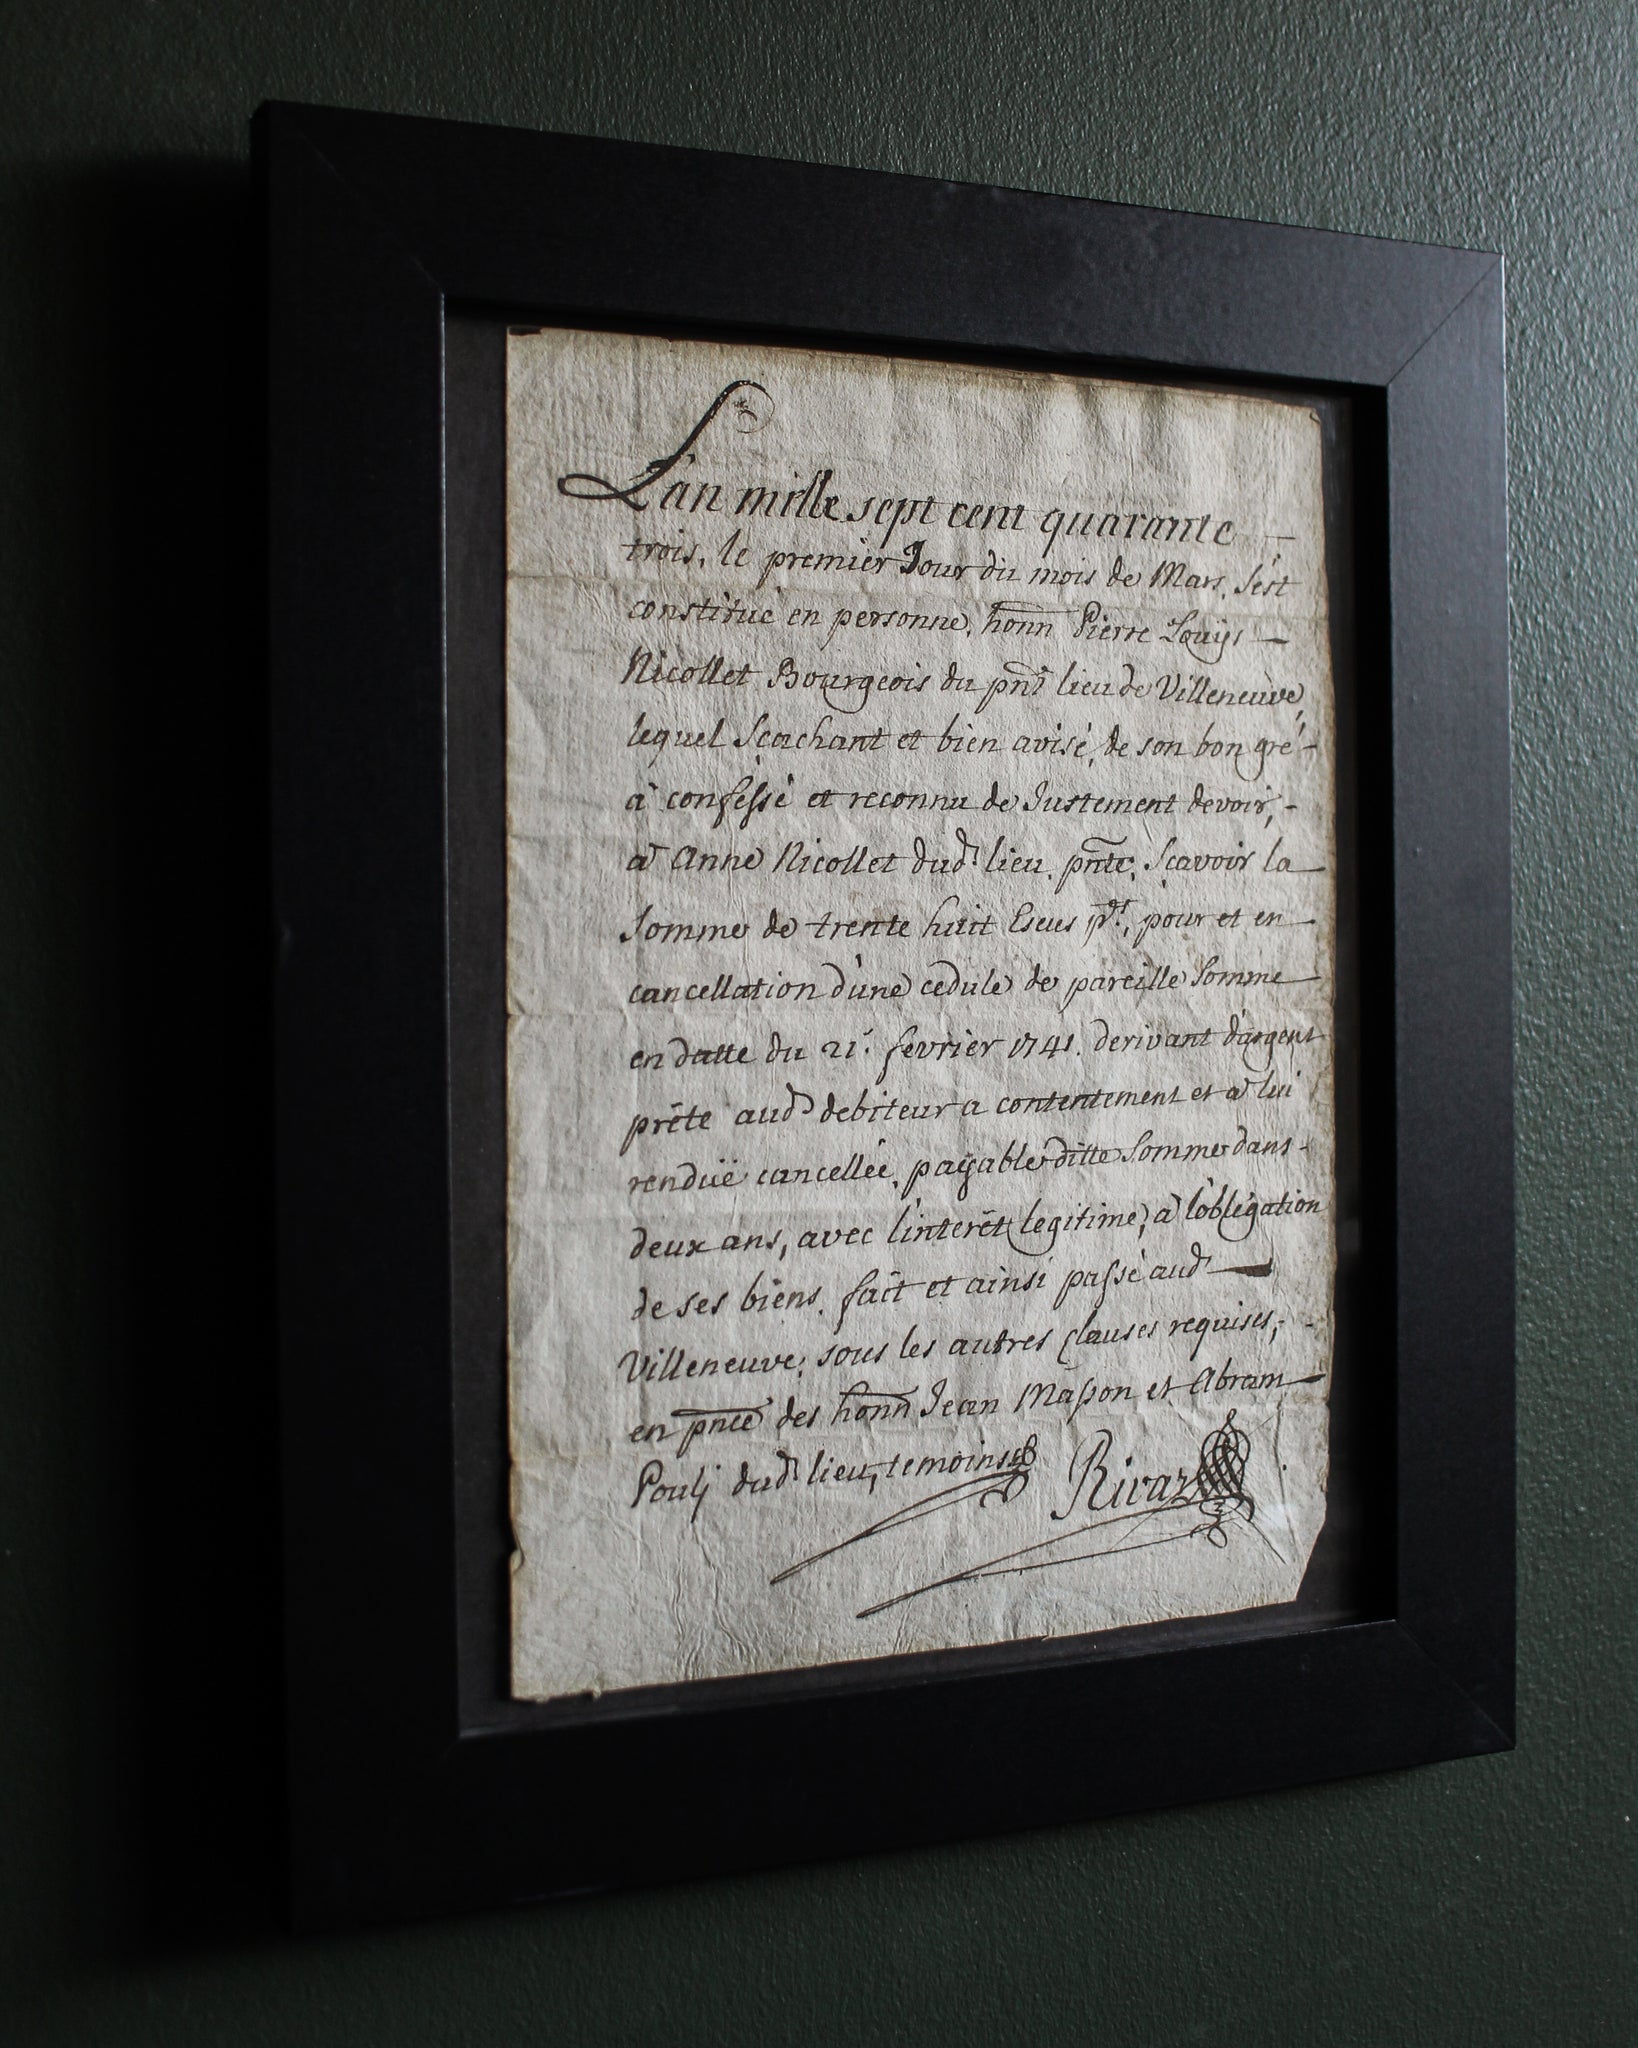 L'an mille sept cent quarante
trois, le premier Jour du mois de Mars, s'est
constitué en personne, honn Pierre Louÿs
Nicollet Bourgeois du pnt lieu de Villeneuve,
lequel Scachant et bien avisé, de son bon gré
a confessé et reconnu de Justement devoir,
a Anne Nicollet dud lieu, pnte, Scavoir la
Somme de trente huit Escus pts, pour et en
cancellation d'une cedule de pareille Somme
en datte du 21. fevrier 1741. derivant d'argent
prête aud debiteur a contentement et a lui
renduë cancellée, payable ditte Somme dans
deux ans, avec l'interêt legitime, a l'oblégation
de ses biens, fait et ainsi passé aud
Villeneuve; sous les autres clauses requises,
en pnce des honn Jean Masson et Abram
Poulj dud lieu, temoins Rivaz